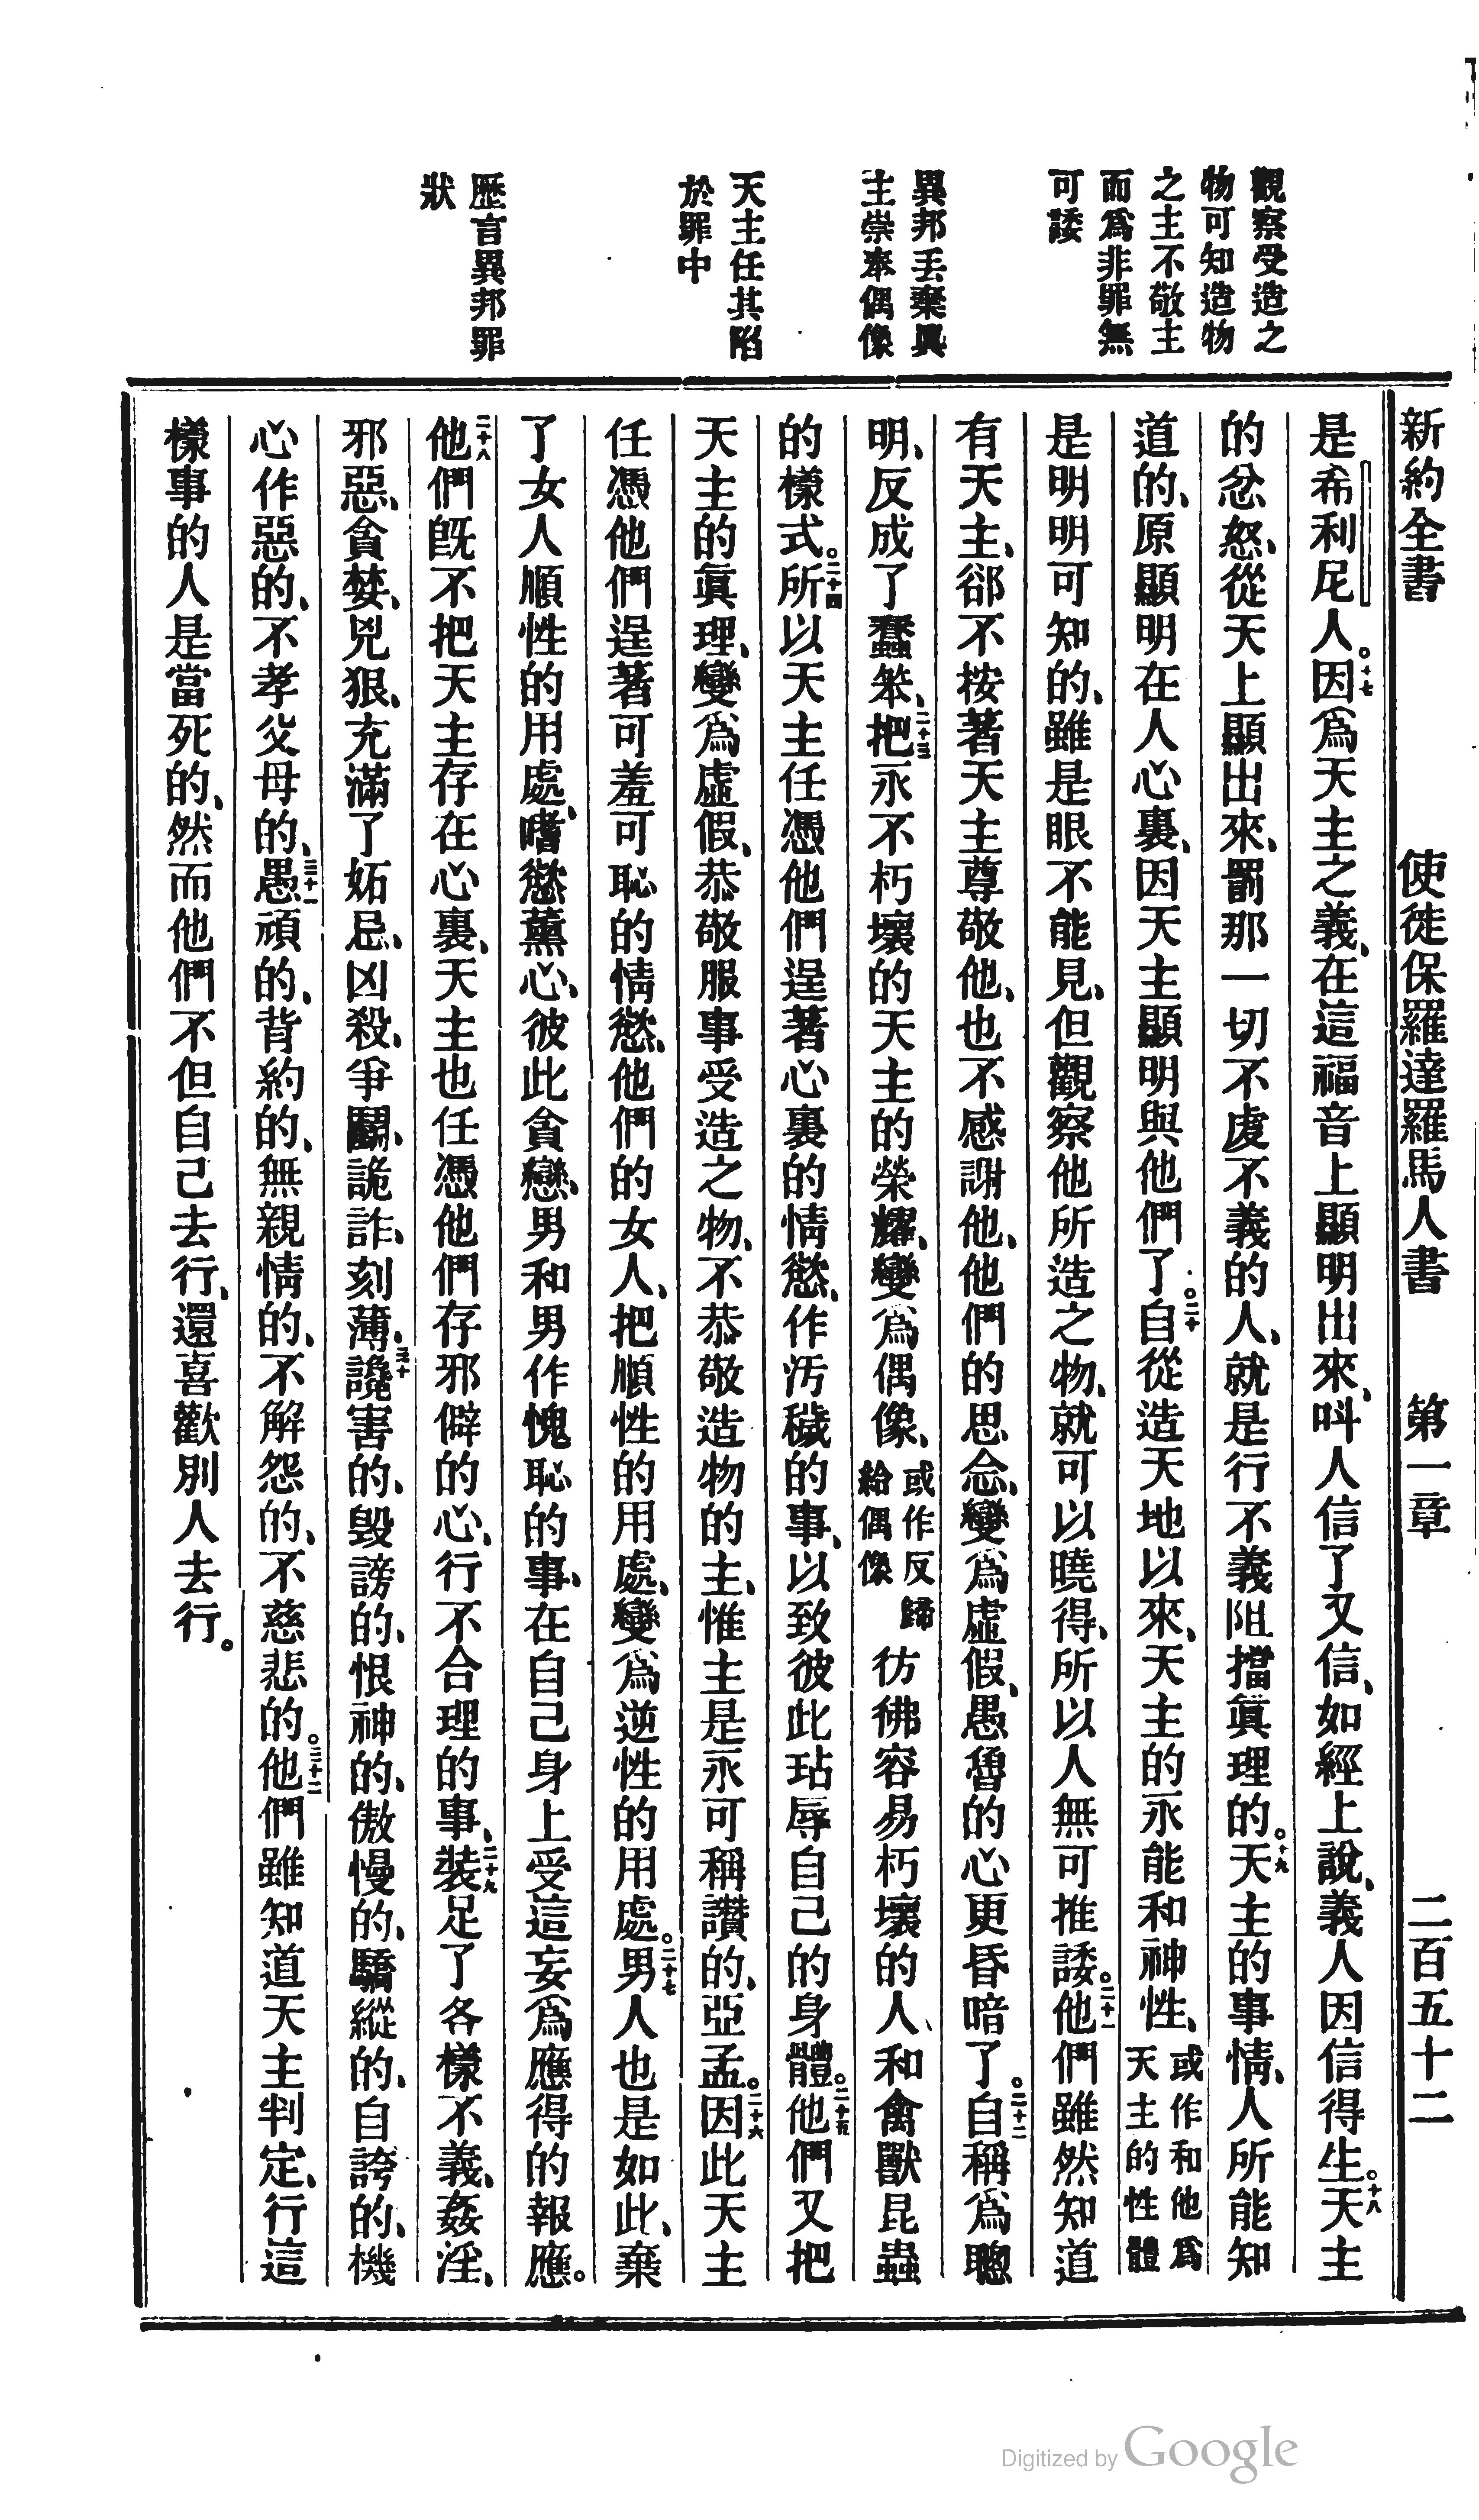 新約全書 使徒保羅達羅馬人書 第一章 二百五十二
觀察受造之
物可知造物
之主不敬主
而爲非罪無
可諉
異邦丟棄眞
主崇奉偶像
天主任其陷
於罪中
歷言異邦罪
狀
是希利尼人。十七因爲天主之義、在這福音上顯明出來、呌人信了又信、如經上說、義人因信得生。十八天主
的忿怒、從天上顯出來、罰那一切不虔不義的人、就是行不義阻擋眞理的。十九天主的事情、人所能知
道的、原顯明在人心裏、因天主顯明與他們了。二十自從造天地以來、天主的永能和神性、或作和他爲天主的性體
是明明可知的、雖是眼不能見、但觀察他所造之物、就可以曉得、所以人無可推諉。二十一他們雖然知道
有天主、郤不按著天主尊敬他、也不感謝他、他們的思念、變爲虛假、愚魯的心更昏暗了。二十二自稱爲聰
明、反成了蠢笨、二十三把永不朽壞的天主的榮耀、變爲偶像、或作反歸給偶像彷彿容易朽壞的人、和禽獸昆蟲
的樣式。二十四所以天主任憑他們逞著心裏的情慾、作汚穢的事、以致彼此玷辱自己的身體。二十五他們又把
天主的眞理、變爲虛假、恭敬服事受造之物、不恭敬造物的主、惟主是永可稱讚的、亞孟。二十六因此天主
任憑他們逞著可羞可恥的情慾、他們的女人、把順性的用處、變爲逆性的用處。二十七男人也是如此、棄
了女人順性的用處、嗜慾薰心、彼此貪戀、男和男作愧恥的事、在自己身上受這妄爲應得的報應。
二十八他們旣不把天主存在心裏、天主也任憑他們存邪僻的心、行不合理的事、二十九裝足了各樣不義、姦淫、
邪惡、貪婪、兇狠、充滿了妬忌、凶殺、爭鬭、詭詐、刻薄、三十讒害的、毀謗的、恨神的、傲慢的、驕縱的、自誇的、機
心作惡的、不孝父母的、三十一愚頑的、背約的、無親情的、不解怨的、不慈悲的。三十二他們雖知道天主判定、行這
樣事的人是當死的、然而他們不但自己去行、還喜歡別人去行。
Digitized by Google